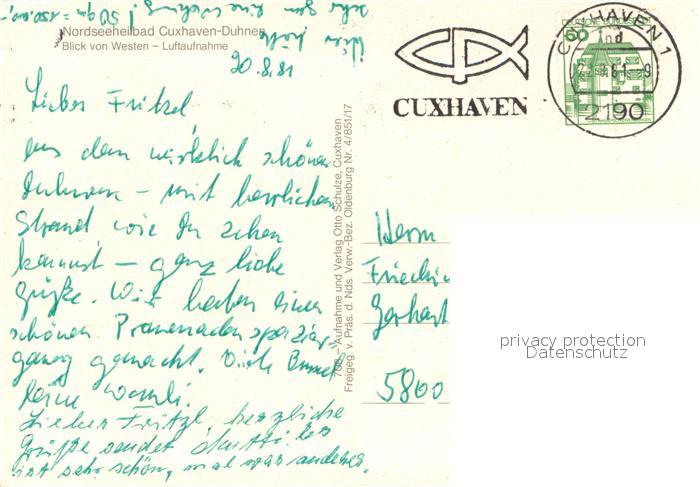 sehr gern eine Wohnung! 50 qm = 150.000,-
Wir hätte
Nordseeheilbad Cuxhaven-Duhnen
Blick von Westen – Luftaufnahme
20.8.81
Lieber Fritzel
aus dem wirklich schönen
Duhnen – mit herrlichem
Strand wie Du sehen
kannst – ganz liebe
Grüße. Wir haben einen
schönen Promenaden spazier-
gang gemacht. Dich
Deine
Lieber Fritzl, herzliche
Grüße sendet Es
ist sehr schön, mal was anderes.
Aufnahme und Verlag Otto Schulze, Cuxhaven
Freigeg. v. Präs. d. Nds. Verw.-Bez. Oldenburg Nr. 4/851/17
CUXHAVEN
DEUTSCHE BUNDESPOST
60
CUXHAVEN 1
nd
2190
Herrn
Friedri
Gerhart
5800
privacy protection
Datenschutz